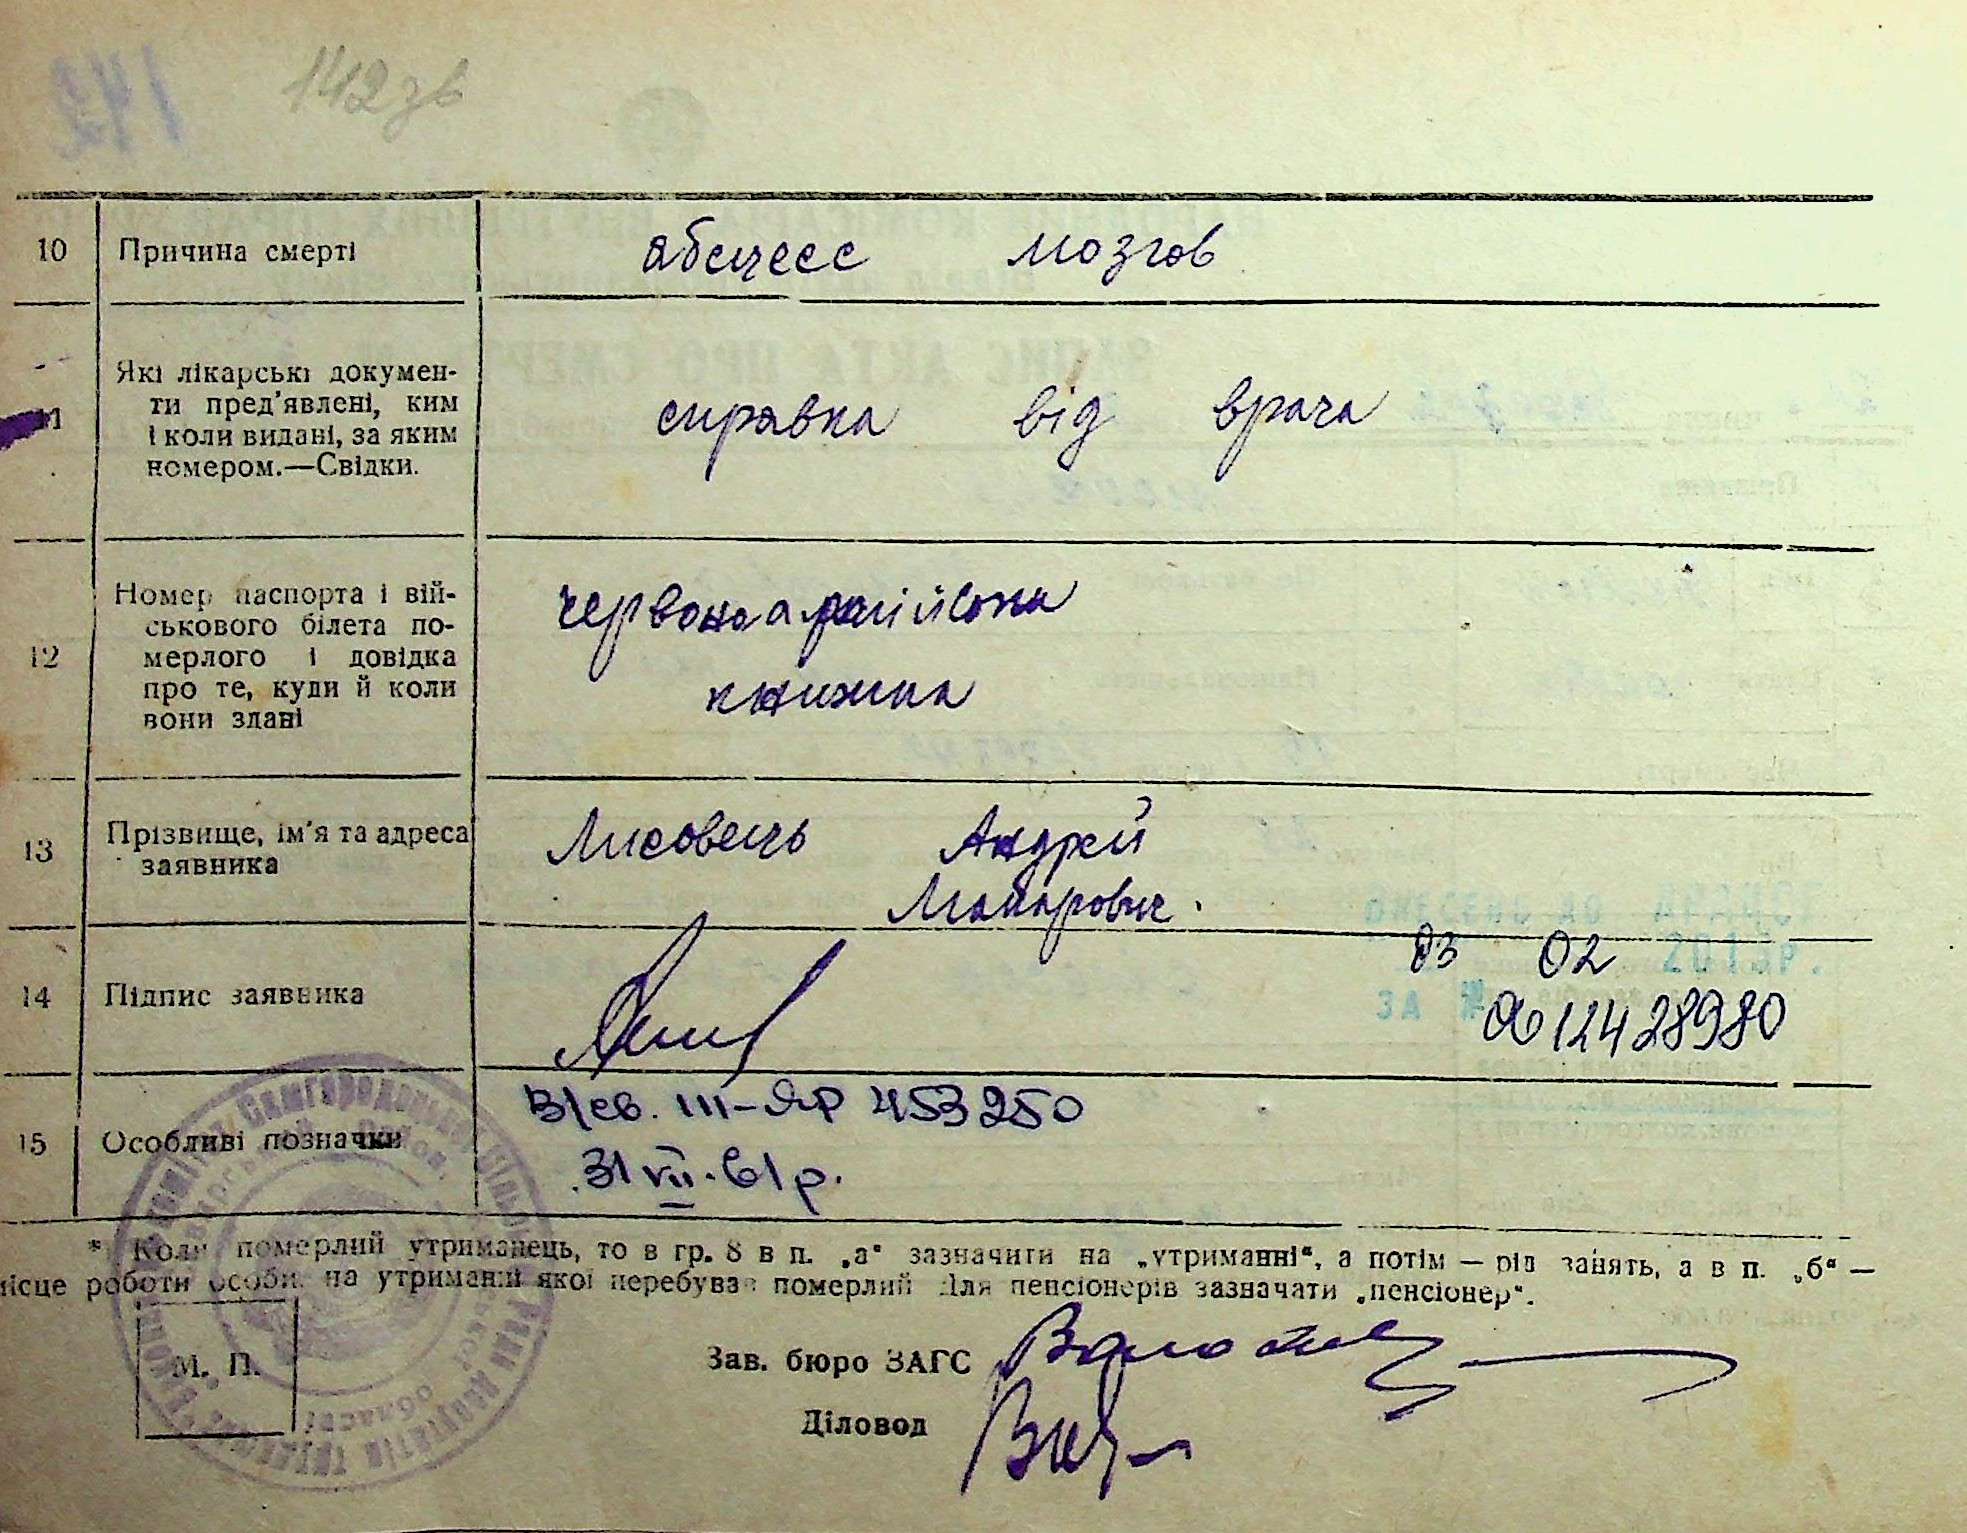 142
142 зв
10 Причина смерті абсцесс мозгов
11 Які лікарські докумен-
ти пред'явлені, ким
і коли видані, за яким
номером.—Свідки.
справка від врача
12 Номер паспорта і вій-
ськового білета по-
мерлого і довідка
про те, куди й коли
вони здані
червоноармійська
книжка
13 Прізвище, ім'я та адреса
заявника
Лисовець Андрей
Макарович.
ВНЕСЕНО ДО ДРАЦСГ
03 02 2013р.
ЗА № 0012428980
14 Підпис заявника
15 Особливі позначки
В/св. III-ЯР 453250
31 VII. 61 р.
* Коли померлий утриманець, то в гр. 8 в п. „а" зазначити на „утриманні", а потім — рід занять, а в п. „б" —
місце роботи особи, на утриманні якої перебував померлий. Для пенсіонерів зазначати „пенсіонер".
М. П.
Зав. бюро ЗАГС
Діловод